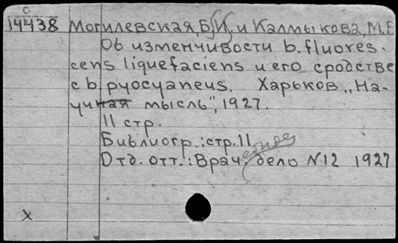 с
14438 Могилевская, Б.И. и Калмыкова, М.Е.
Об изменчивости b. fluores-
cens liquefaciens и его сродстве
с b. pyocyaneus. Харьков „На-
учная мысль", 1927.
11 стр.
Библиогр.: стр. 11
Отд. отт.: Врач. дело N12 1927
x